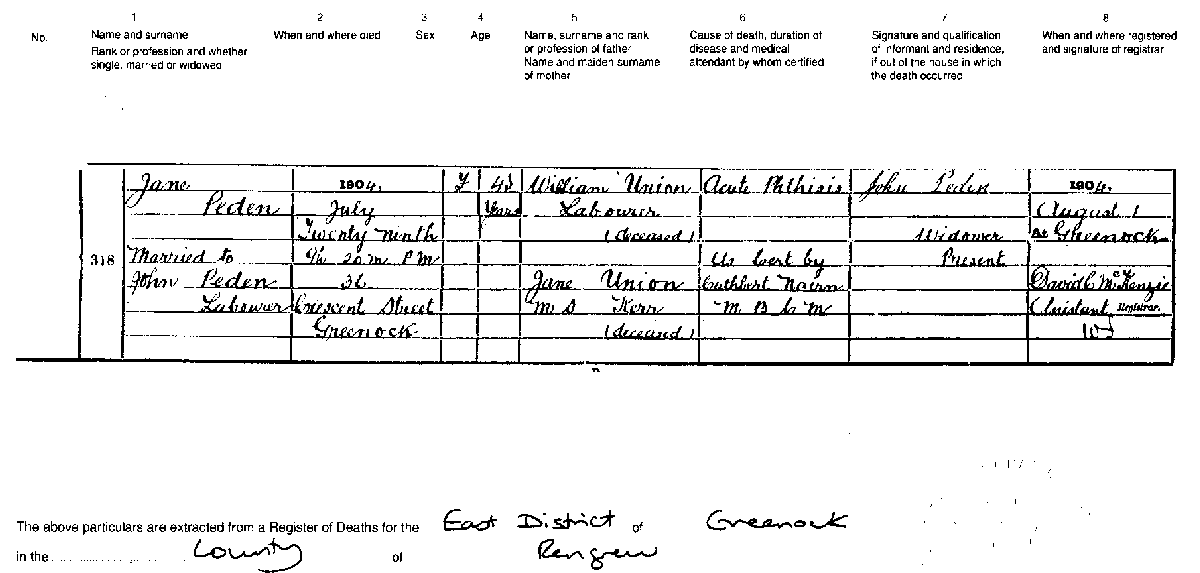 1 2 3 4 5 6 7 8
No. Name and surname When and where died Sex Age Name, surname and rank Cause of death, duration of Signature and qualification When and where registered
Rank or profession and whether or profession of father disease and medical of informant and residence, and signature of registrar
single, married or widowed Name and maiden surname attendant by whom certified if out of the house in which
of mother the death occurred
Jane 1904. F William Union Acute Phthisis John Peden 1904.
Peden July Years Labourer August 1
Twenty ninth (deceased) Widower At Greenock
318 Married to 9h 20m PM As Cert by Present
John Peden Jane Union Cuthbert Nairn David C McKenzie
Labourer Crescent Street m s Kerr M B C M Assistant Registrar.
Greenock (deceased)
The above particulars are extracted from a Register of Deaths for the East District of Greenock
in the County of Renfrew